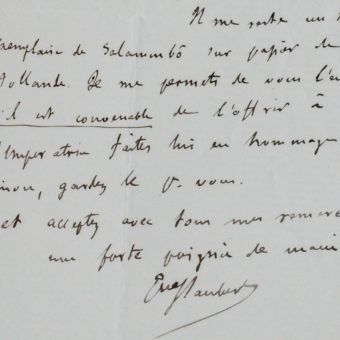 Il me reste un
exemplaire de Salammbô sur papier de
Hollande. Je me permets de vous l'en
s'il est convenable de l'offrir à
l'Impératrice faites lui en hommage
sinon, gardez le pr vous.
et acceptez avec tous mes remerc
une forte poignée de main
Gve Flaubert